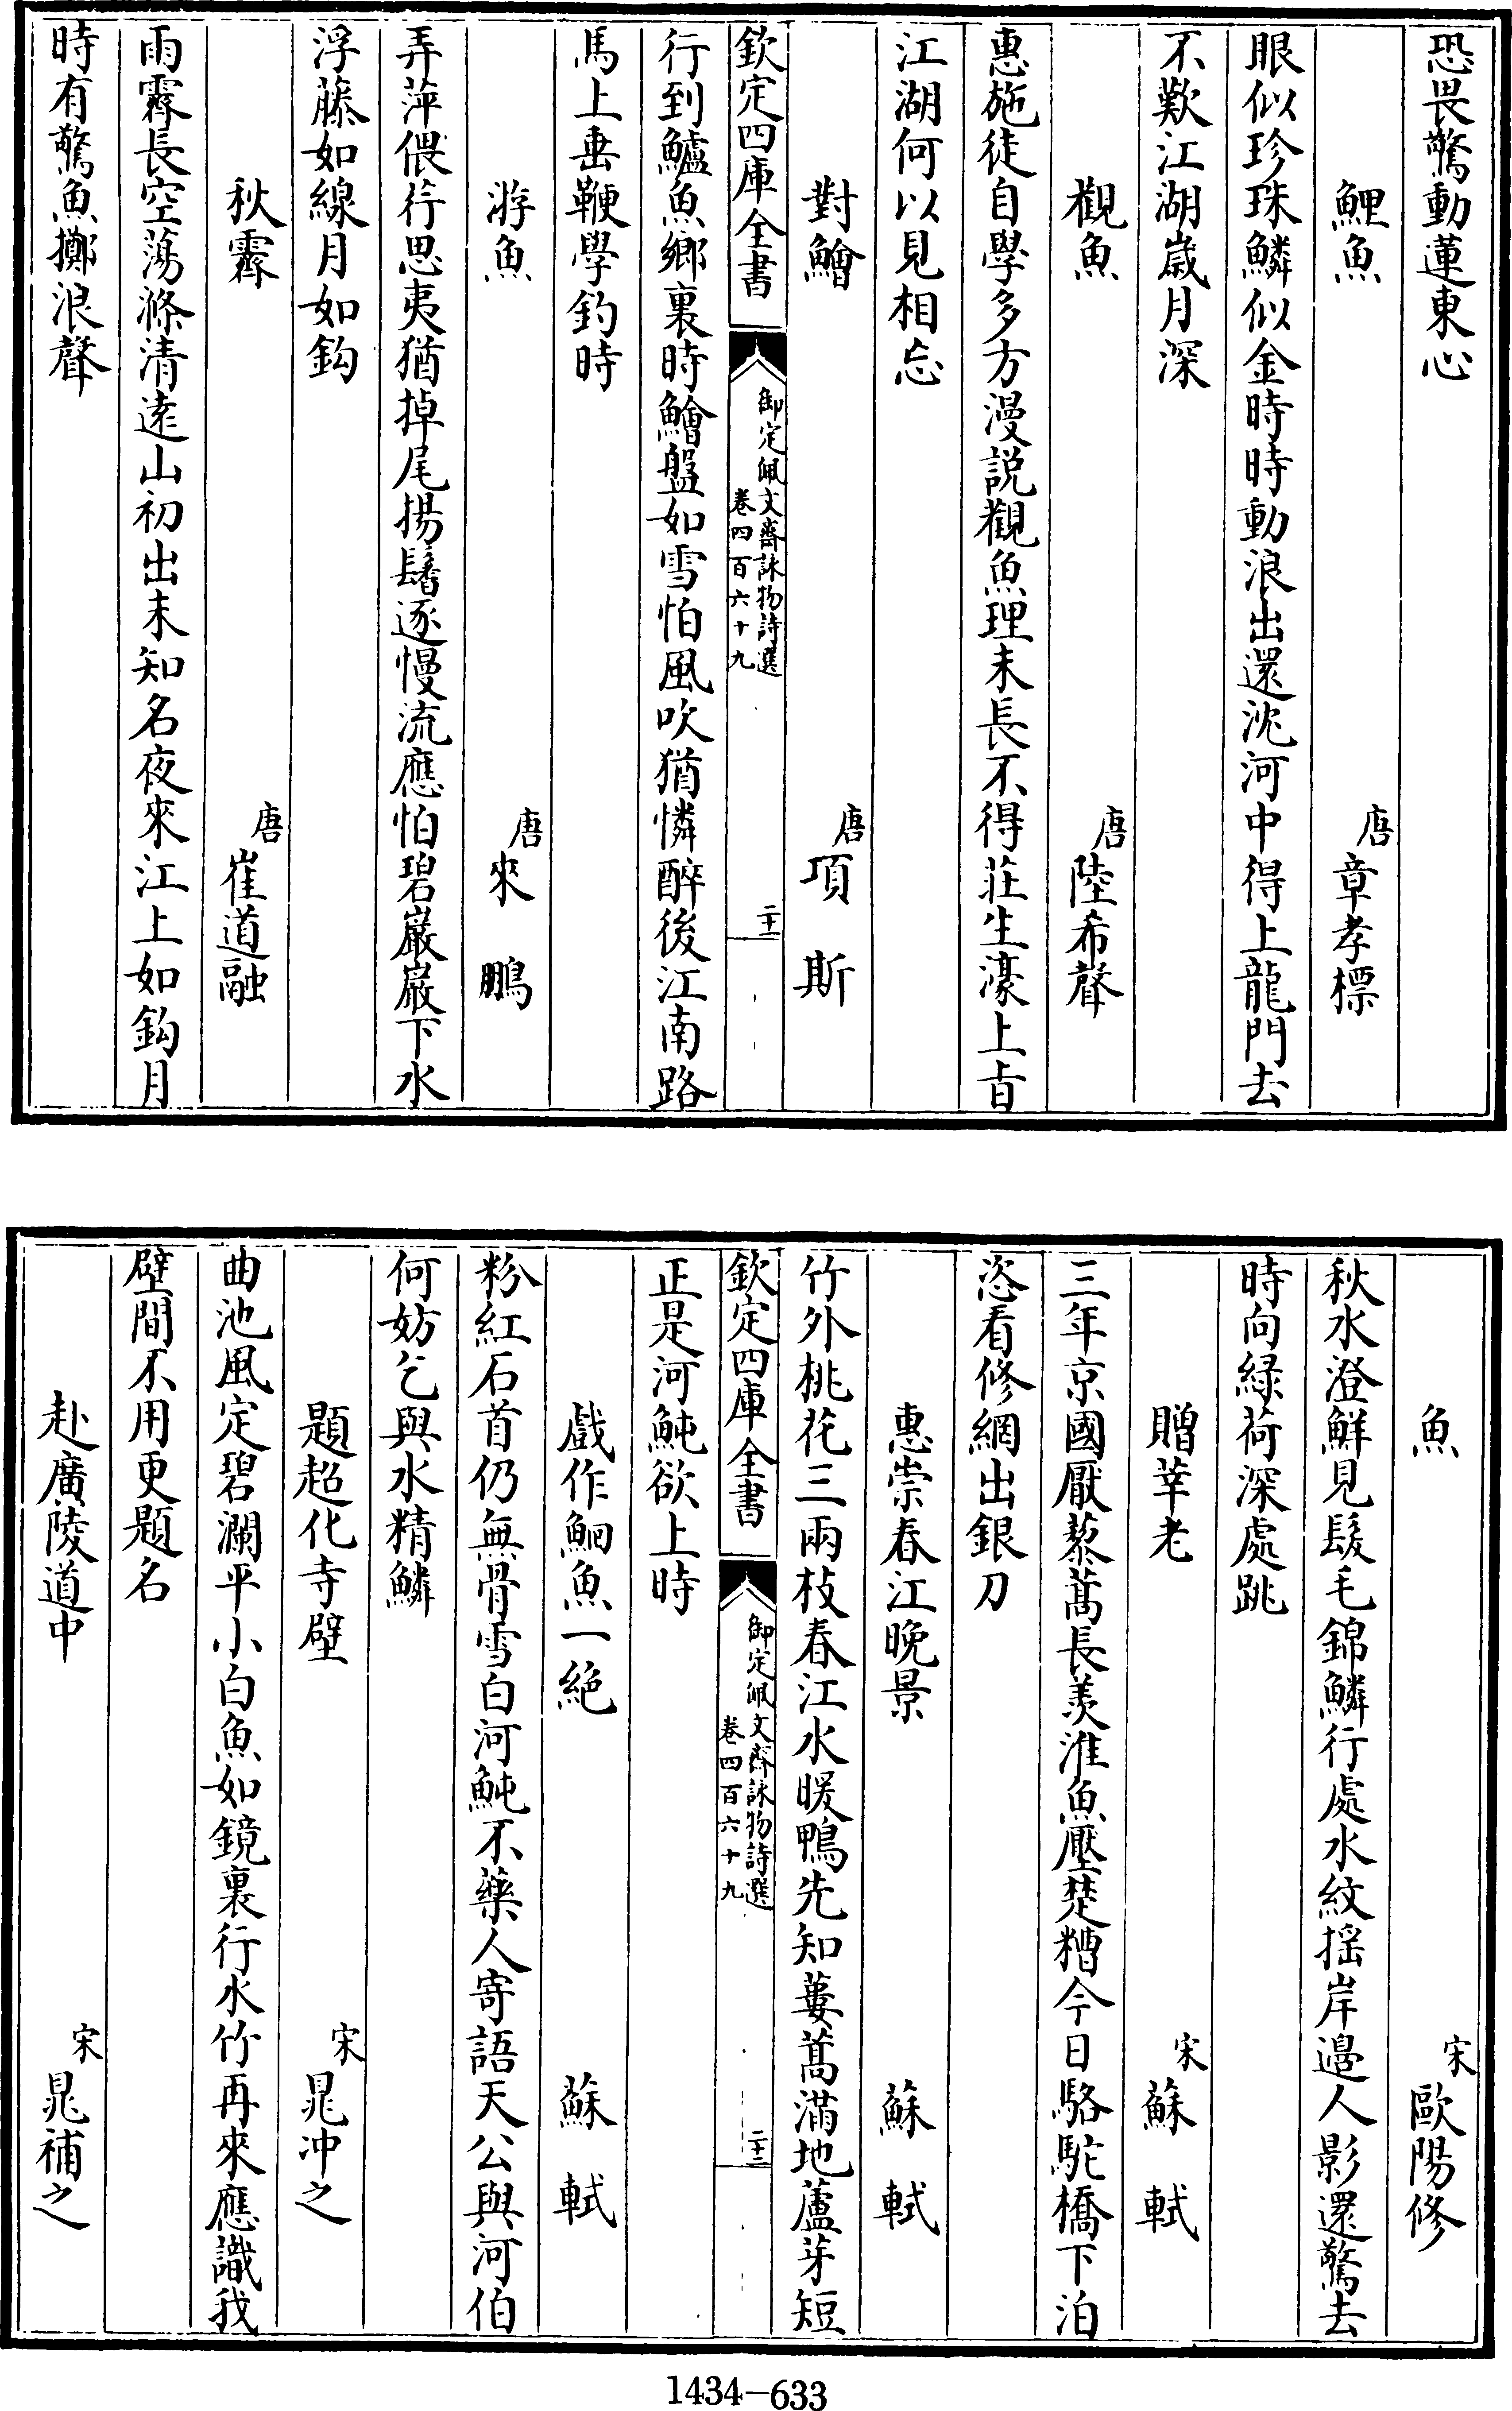 恐畏驚動蓮東心
鯉魚
唐章孝標
眼似珍珠鱗似金時時動浪出還沈河中得上龍門去
不歎江湖歲月深
觀魚
唐陸希聲
惠施徒自學多方漫説觀魚理未長不得莊生濠上旨
江湖何以見相忘
對鱠
唐項斯
欽定四庫全書
御定佩文齋詠物詩選
卷四百六十九
二十一
行到鱸魚鄉裏時鱠盤如雪怕風吹猶憐醉後江南路
馬上垂鞭學釣時
游魚
唐來鵬
弄萍偎荇思夷猶掉尾揚鬐逐慢流應怕碧巖巖下水
浮藤如線月如鈎
秋霽
唐崔道融
雨霽長空蕩滌清遠山初出未知名夜來江上如鈎月
時有驚魚擲浪聲
魚
宋歐陽修
秋水澄鮮見髮毛錦鱗行處水紋摇岸邊人影還驚去
時向緑荷深處跳
贈莘老
宋蘇軾
三年京國厭藜蒿長羨淮魚壓楚糟今日駱駝橋下泊
恣看修網出銀刀
惠崇春江晚景
蘇軾
竹外桃花三兩枝春江水暖鴨先知蔞蒿滿地蘆芽短
欽定四庫全書
御定佩文齋詠物詩選
卷四百六十九
二十二
正是河魨欲上時
戲作鮰魚一絶
蘇軾
粉紅石首仍無骨雪白河魨不藥人寄語天公與河伯
何妨乞與水精鱗
題超化寺壁
宋晁冲之
曲池風定碧瀾平小白魚如鏡裏行水竹再來應識我
壁間不用更題名
赴廣陵道中
宋晁補之
1434-633